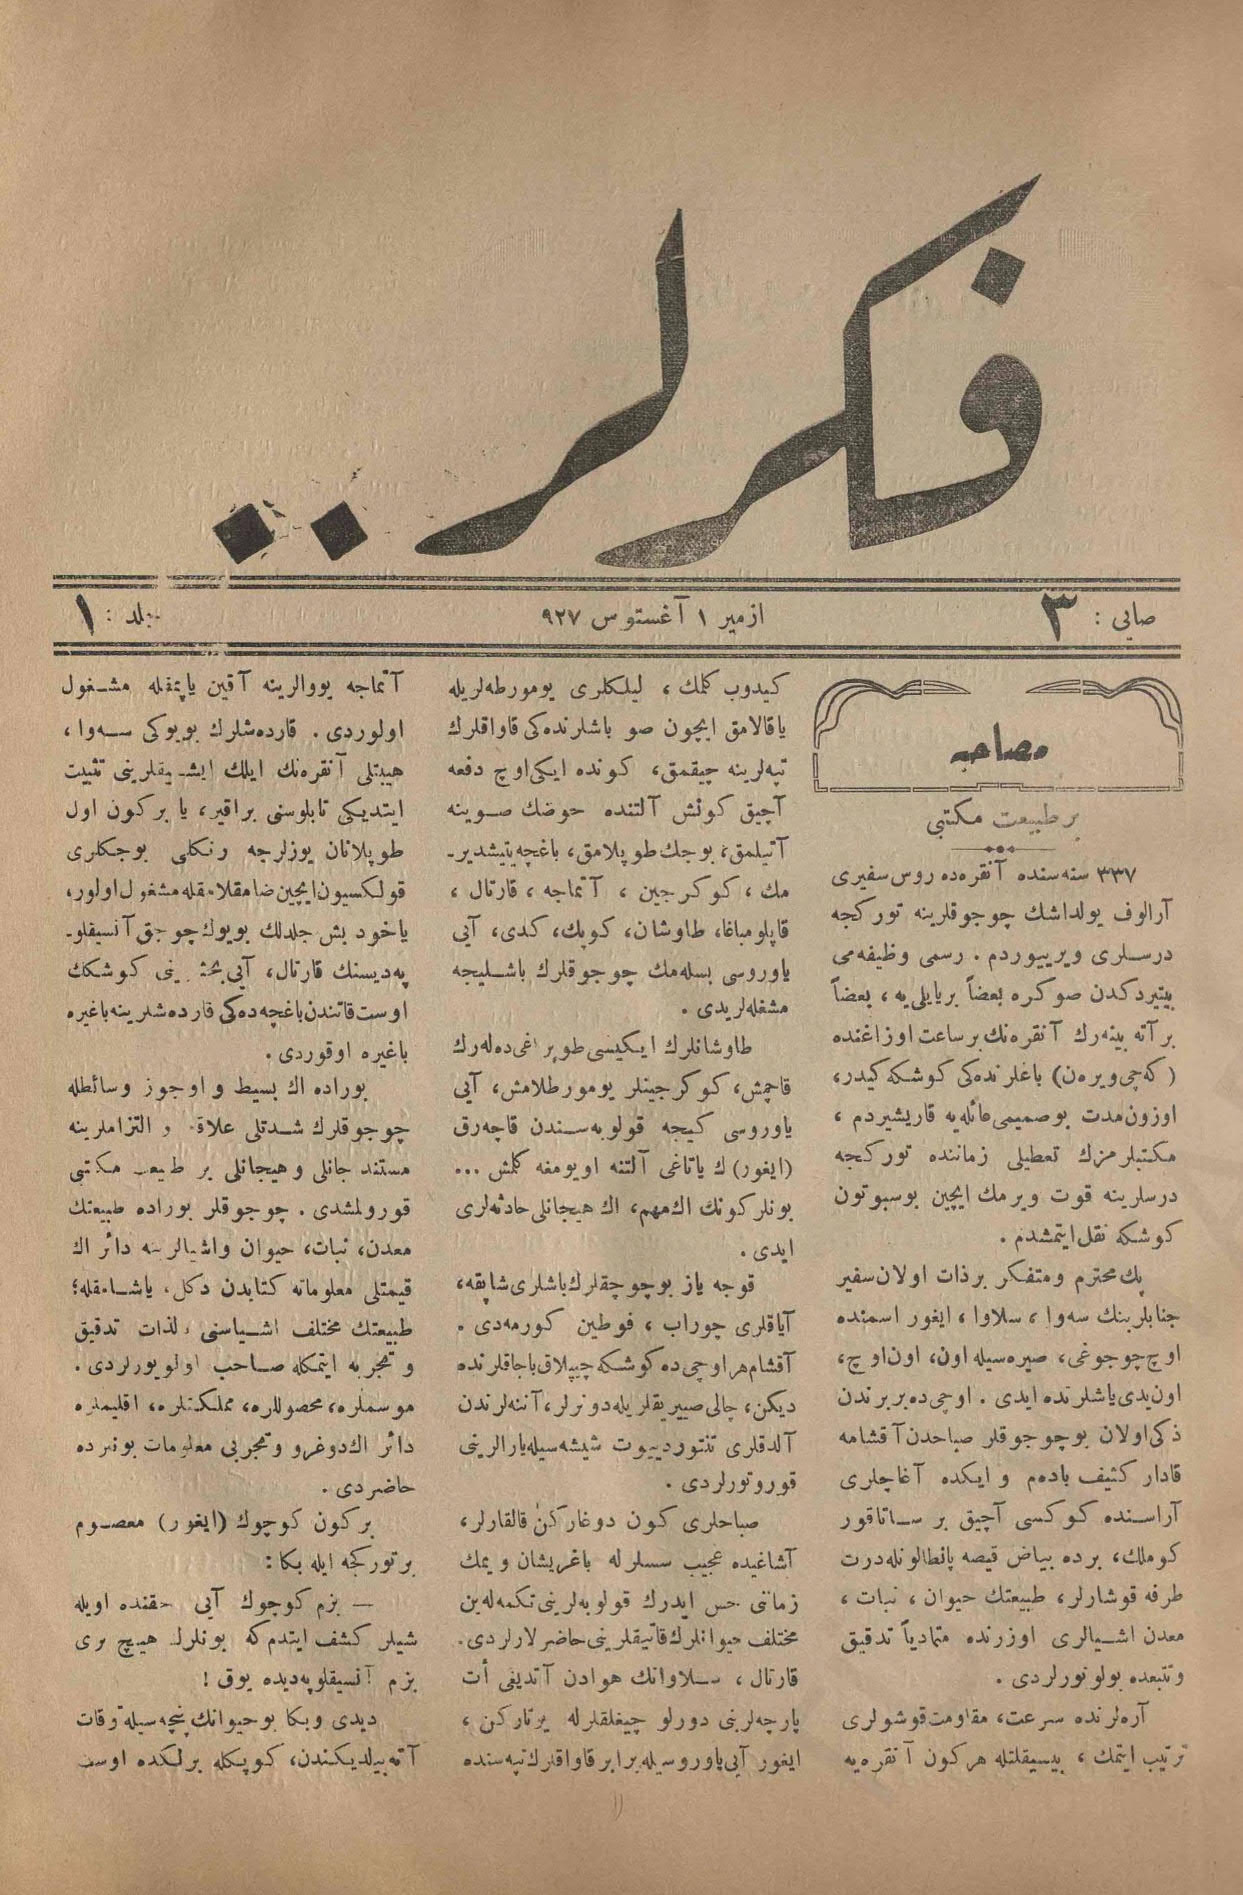 فكرلر..
صايى : ٣
ازمير ١ آغستوس ٩٢٧
جلد : ١
مصاحبه
بر طبيعت مكتبى
٣٣٧ سنه‌سنده آنقره‌ده روس سفيرى
آرالوف يولداشك چوجوقلرينه توركجه
درسلرى ويرييوردم . رسمى وظيفه‌مى
بيتيردكدن صوكره بعضاً بريايلى‌يه ، بعضاً
بر آته بينه‌رك آنقره‌نك بر ساعت اوزاغنده
(كه‌چى‌ويره‌ن) باغلرنده‌كى كوشكه كيدر،
اوزون مدت بوصميمى عائله‌يه قاريشيردم ،
مكتبلرمزك تعطيلى زماننده توركجه
درسلرينه قوت ويرمك ايچين بوسبوتون
كوشكه نقل ايتمشدم .
پك محترم ومتفكر برذات اولان سفير
جنابلرينك سه‌وا ، سلاوا ، ايغور اسمنده
اوچ چوجوغى، صيره‌سيله اون، اون اوچ،
اون يدى ياشلرنده ايدى . اوچى ده بربرندن
ذكى اولان بوچوجوقلر صباحدن آقشامه
قادار كثيف بادم و ايكده آغاچلرى
آراسنده كوكسى آچيق بر ساتاقور
كوملك، برده بياض قيصه پانطالونله درت
طرفه قوشارلر، طبيعتك حيوان ، نبات ،
معدن اشيالرى اوزرنده متمادياً تدقيق
وتتبعده بولونورلردى .
آره‌لرنده سرعت، مقاومت قوشولرى
ترتيب ايتمك ، بيسيقلتله هركون آنقره‌يه
كيدوب كلمك ، ليلكلرى يومورطه‌لريله
ياقالامق ايچون صو باشلرنده‌كى قاواقلرك
تپه‌لرينه چيقمق، كونده ايكى اوچ دفعه
آچيق كونش آلتنده حوضك صوينه
آتيلمق، بوجك طوپلامق، باغچه يتيشدير-
مك ، كوكرجين ، آتماجه ، قارتال ،
قاپلومباغا، طاوشان، كوپك، كدى، آيى
ياوروسى بسله‌مك چوجوقلرك باشليجه
مشغله‌لريدى .
طاوشانلرك ايكيسى طوپراغى ده‌له‌رك
قاچمش، كوكرجينلر يومورطلامش، آيى
ياوروسى كيجه قولوبه‌سندن قاچه‌رق
(ايغور) ك ياتاغى آلتنه اويومغه كلمش ...
بونلر كونك اك مهم، اك هيجانلى حادثه‌لرى
ايدى .
قوجه ياز بوچوجقلرك باشلرى شاپقه،
آياقلرى چوراب ، فوطين كورمه‌دى .
آقشام هر اوچى ده كوشكه چيپلاق باجاقلرنده
ديكن، چالى صييريقلريله دونرلر، آننه‌لرندن
آلدقلرى تنتورديوت شيشه‌سيله يارالرينى
قوروتورلردى .
صباحلرى كون دوغاركن قالقارلر،
آشاغيده عجيب سسلرله باغريشان و يمك
زماننى حس ايدرك قولوبه‌لرينى تكمه‌له‌ين
مختلف حيوانلرك قاتيقلرينى حاضرلارلردى.
قارتال ، سلاوانك هوادن آتديغى أت
پارچه‌لرينى دورلو چيغلقلرله يرتاركن ،
ايغور آيى ياوروسيله برابر قاواقلرك تپه‌سنده
آتماجه يووالرينه آقين ياپمقله مشغول
اولوردى . قارده‌شلرك بويوكى سه‌وا ،
هيبتلى آنقره‌نك ايلك ايشيقلرينى تثبيت
ايتديكى تابلوسنى براقير، يا بركون اول
طوپلانان يوزلرجه رنكلى بوجكلرى
قولكسيون ايچين ضامقلامقله مشغول اولور،
ياخود بش جلدلك بويوك چوجق آنسيقلو-
په‌ديسنك قارتال، آيى بحثلرينى كوشكك
اوست قاتندن باغچه‌ده‌كى قارده‌شلرينه باغيره
باغيره اوقوردى .
بوراده اك بسيط و اوجوز وسائطله
چوجوقلرك شدتلى علاقه و التزاملرينه
مستند جانلى و هيجانلى بر طبيعت مكتبى
قورولمشدى . چوجوقلر بوراده طبيعتك
معدن، نبات، حيوان واشيالرينه دائر اك
قيمتلى معلوماته كتابدن دكل، ياشامقله؛
طبيعتك مختلف اشياسنى بالذات تدقيق
و تجربه ايتمكله صاحب اولويورلردى .
موسملره، محصوللره، مملكتلره، اقليملره
دائر اك دوغرو و تجربى معلومات بونلرده
حاضردى .
بركون كوچوك (ايغور) معصوم
برتوركجه ايله بكا :
— بزم كوجوك آيى حقنده اويله
شيلر كشف ايتدم كه بونلرك هيچ برى
بزم آنسيقلوپه‌ديده يوق !
ديدى وبكا بوحيوانك پنچه‌سيله توقات
آته‌بيلديكندن، كوپكله برلكده اوست